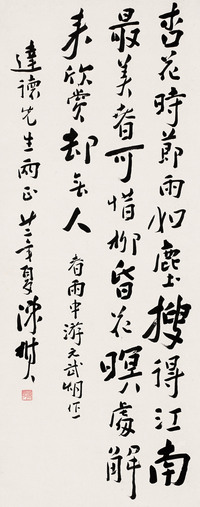 杏花時節雨如塵搜得江南
最美者可惜柳昏花暝處解
來欣賞却無人
春雨中游元武湖作
達懷先生兩正 廿二年夏 陳樹人